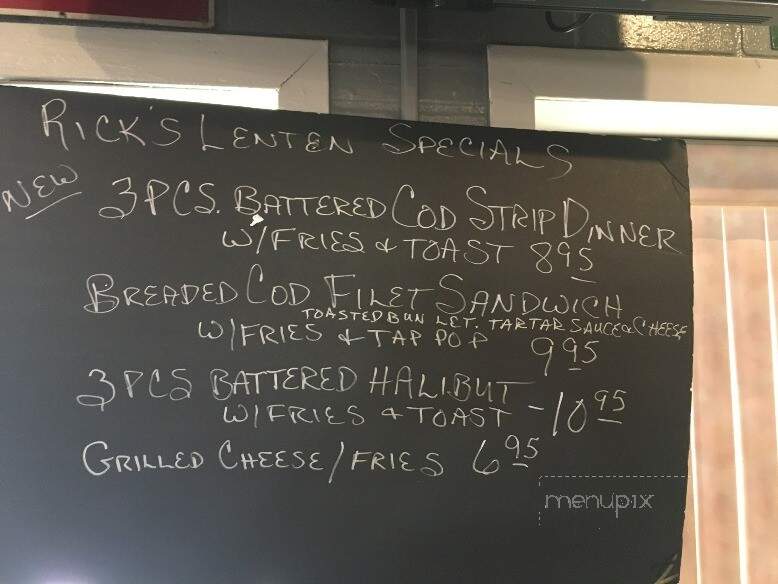 RICK'S LENTEN SPECIALS
NEW 3 PCS. BATTERED COD STRIP DINNER
W/FRIES & TOAST 8 95
BREADED COD FILET SANDWICH
TOASTED BUN LET. TARTAR SAUCE & CHEESE
W/FRIES & TAP POP 9 95
3 PCS BATTERED HALIBUT
W/FRIES & TOAST - 10 95
GRILLED CHEESE/FRIES 6 95
menupix